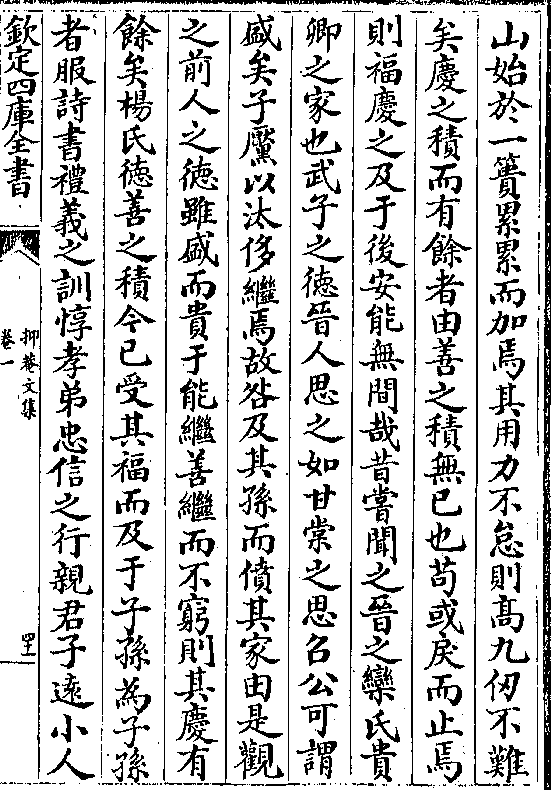 山始於一簣累累而加焉其用力不怠則髙九仞不難
矣慶之積而有餘者由善之積無已也苟或戾而止焉
則福慶之及于後安能無間哉昔嘗聞之晉之欒氏貴
卿之家也武子之徳晉人思之如甘棠之思召公可謂
盛矣子黶以汰侈繼焉故咎及其孫而僨其家由是觀
之前人之徳雖盛而貴于能繼善繼而不窮則其慶有
餘矣楊氏徳善之積今已受其福而及于子孫為子孫
者服詩書禮義之訓惇孝弟忠信之行親君子逺小人
欽定四庫全書
抑菴文集
卷一
四十